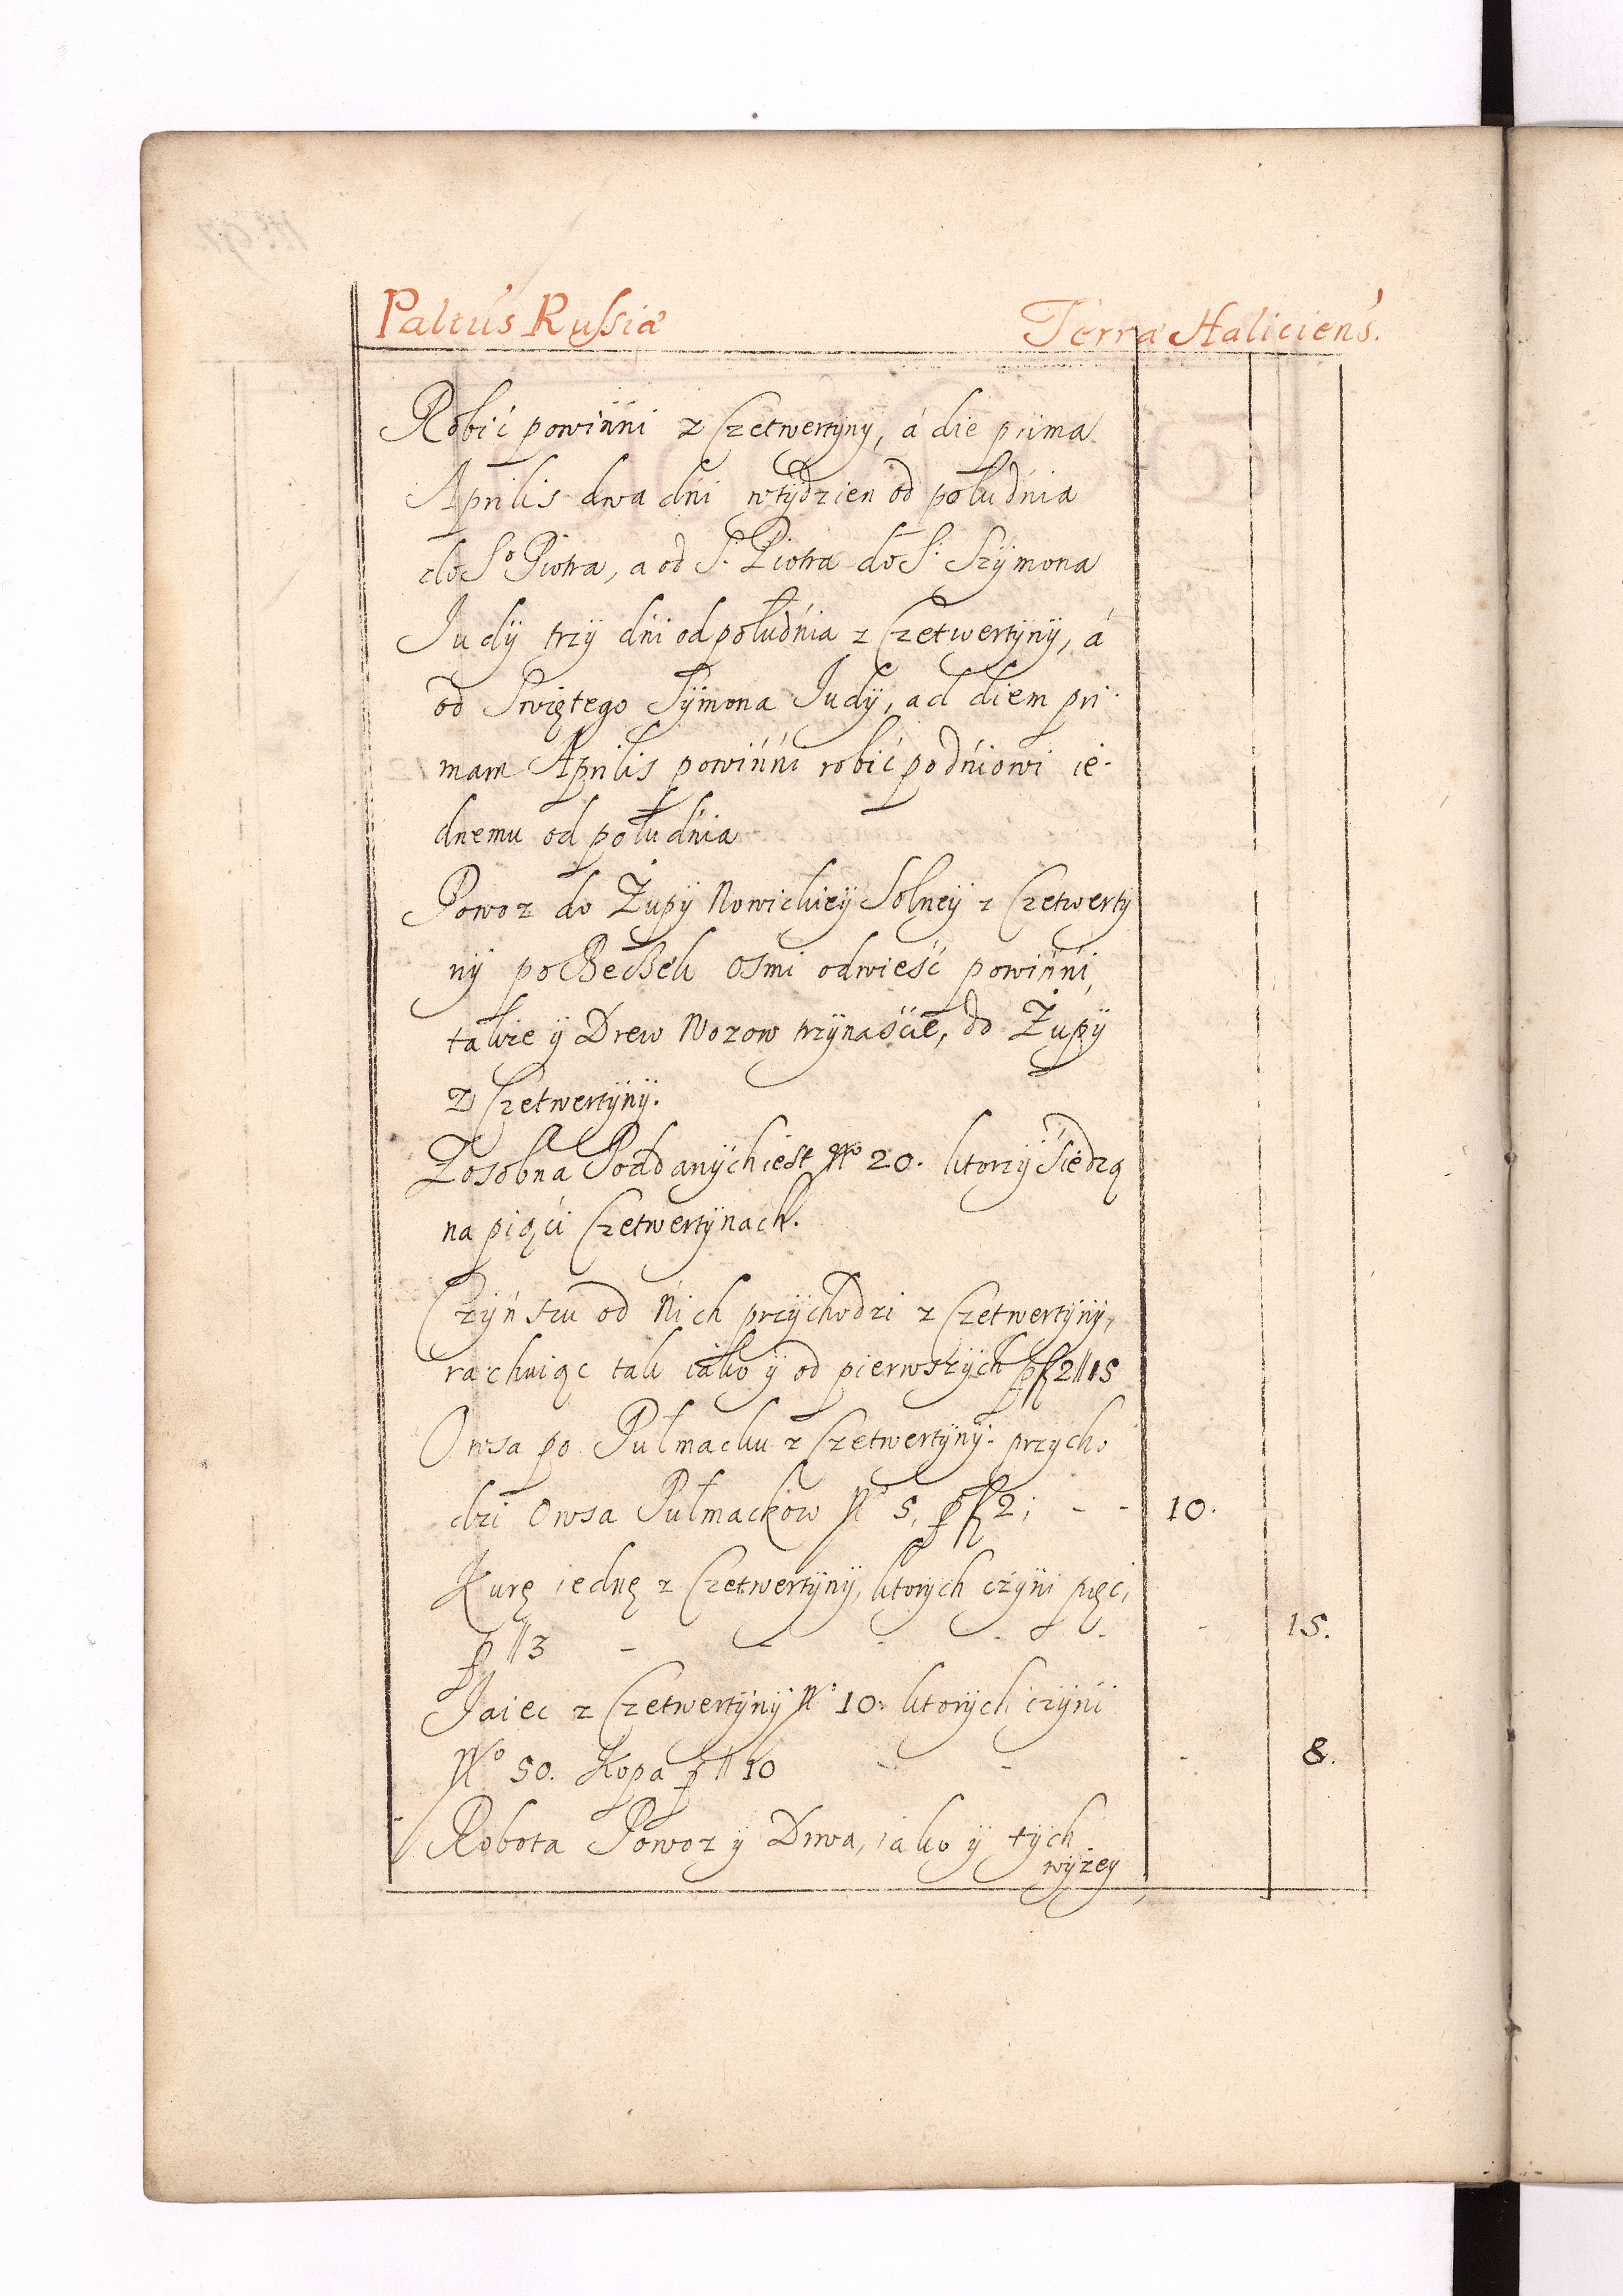 Paltus Russiæ Terra Haliciens.
Robić powinni z Czetwertyny, á die prima
Aprilis dwa dńi w tydzien od połudńia
do So Piotra, a od S. Piotra do S. Szymona
Judy trzy dńi od połudńia z Czetwertyny, á
od Swiętego Symona Judy, ad diem pri-
mam Aprilis powińńi robić po dńiowi ie-
dnemu od połudńia
Powoz do Żupy Nowickiey Solney z Czetwerty
ny po Beczek osmi odwieść powińńi,
takze y Drew Wozow trzynaście, do Żupy
z Czetwertyny.
Zosobna Poddanych iest No 20. ktorzy Siedzą
na piąći Czetwertynach.
Czyńszu od Nich przychodzi z Czetwertyny,
rachuiąc tak iako y od pierwszych p f 2 // 15
Owsa po Pułmacku z Czetwertyny przycho
dzi Owsa Pułmackow No 5, p f 2; - - 10.
Kurę iednę z Czetwertyny, ktorych czyni pięć,
p // 3 - - - - - - 15.
Jaiec z Czetwertyny No 10. ktorych czyni
No 50. Kopa p // 10 - - - 8.
Robota Powoz y Drwa, iako y tych
wyżey